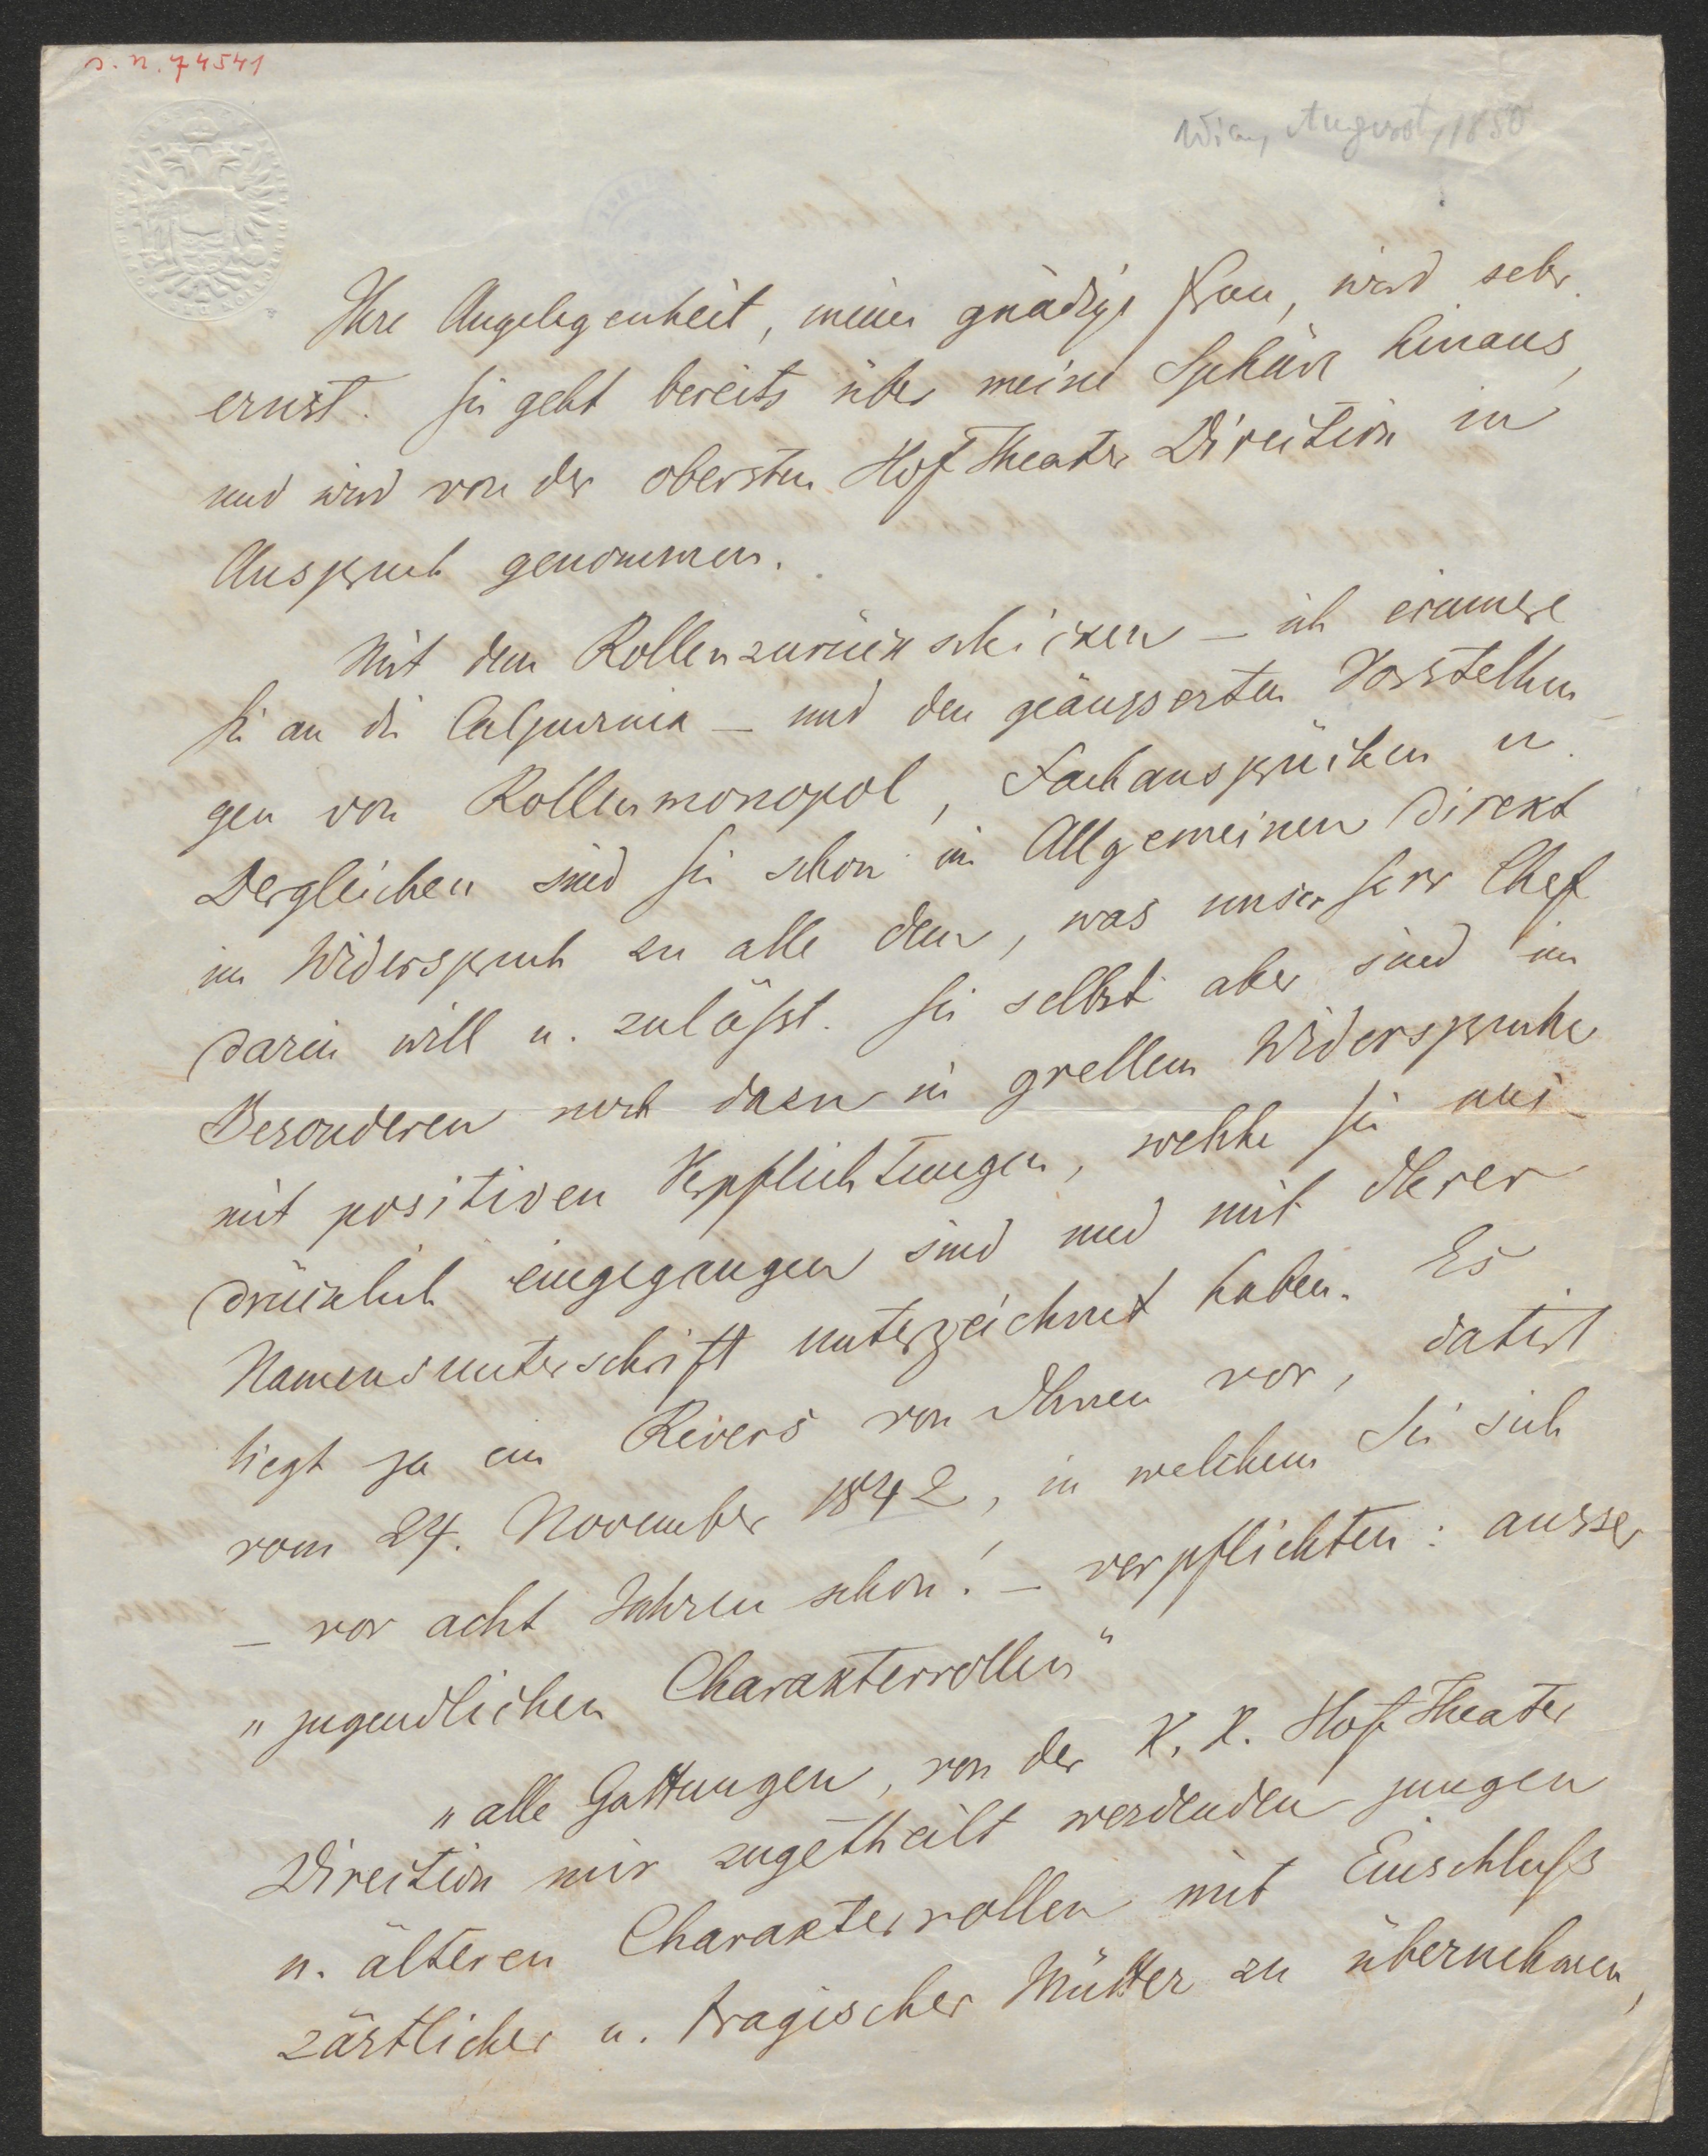 I. N. 74541
Wien, August, 1850
Ihre Angelegenheit, meine gnädige Frau, wird sehr
ernst. Sie geht bereits über meine Sphäre hinaus,
und wird von der obersten Hof Theater Direction in
Anspruch genommen.
Mit dem Rollenzurückschicken – ich erinnere
Sie an die Calpurnia – und den geäusserten Vorstellun-
gen von Rollenmonopol, Fachansprüchen u.
Dergleichen sind Sie schon im Allgemeinen direkt
im Widerspruch zu alle dem, was unser Herr Chef
darin will u. zuläßt. Sie selbst aber sind im
Besonderen noch dazu in grellem Widerspruche
mit positiven Verpflichtungen, welche Sie aus-
drücklich eingegangen sind und mit Ihrer
Namensunterschrift unterzeichnet haben. Es
liegt ja ein Revers von Ihnen vor, datirt
vom 24. November 1842, in welchem Sie sich
– vor acht Jahren schon! – verpflichten: ausser
„jugendlichen Charakterrollen“
„alle Gattungen, von der K. K. Hof Theater
Direction mir zugetheilt werdenden jungen
u. älteren Charakterrollen mit Einschluß
zärtlicher u. tragischer Mütter zu übernehmen,